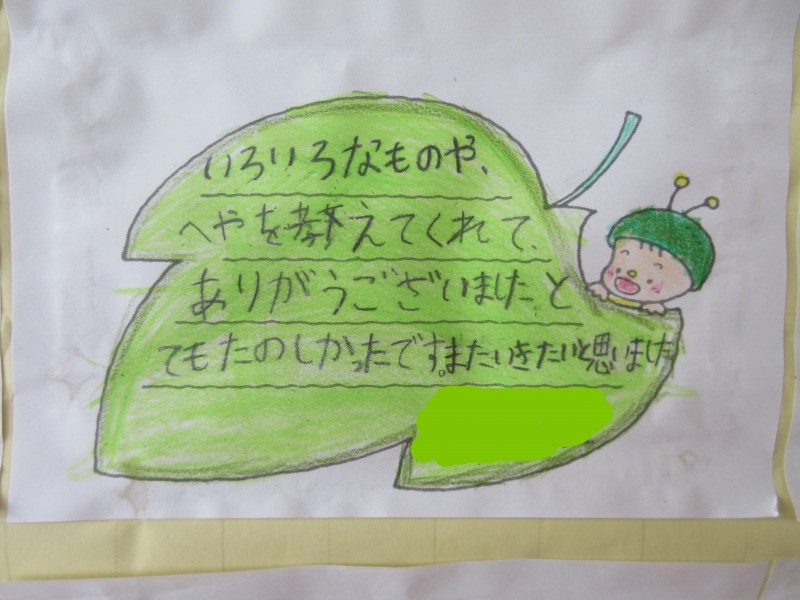 いろいろなものや、
へやを教えてくれて、
ありがうございましたと
てもたのしかったです。またいきたいと思いました